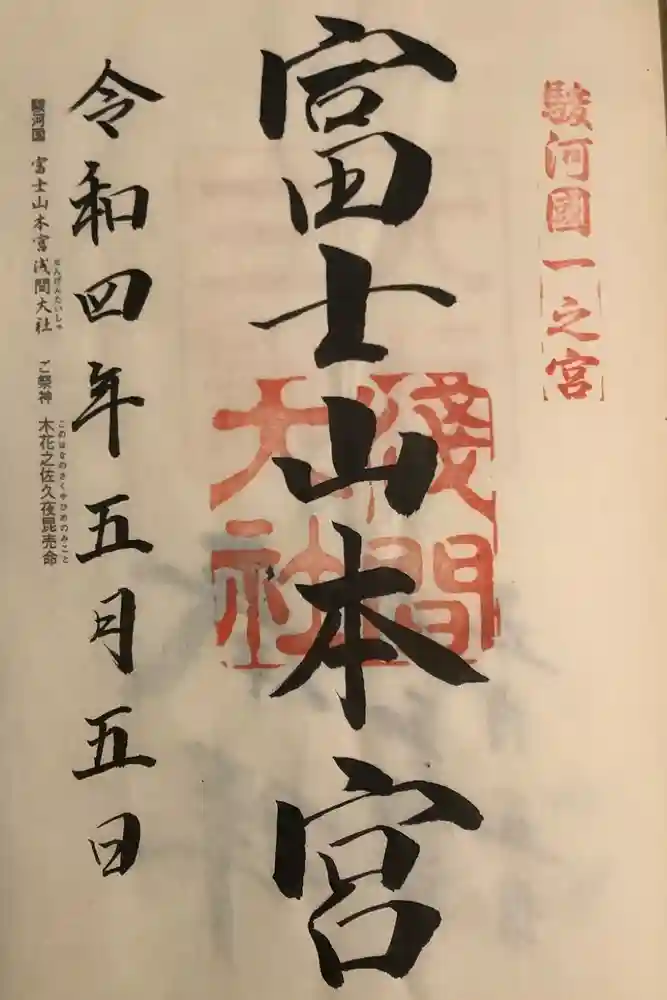 駿河國一之宮
富士山本宮
淺間
大社
令和四年五月五日
駿河国 富士山本宮浅間大社 ご祭神 木花之佐久夜毘売命
せんげんたいしゃ
このはなのさくやひめのみこと